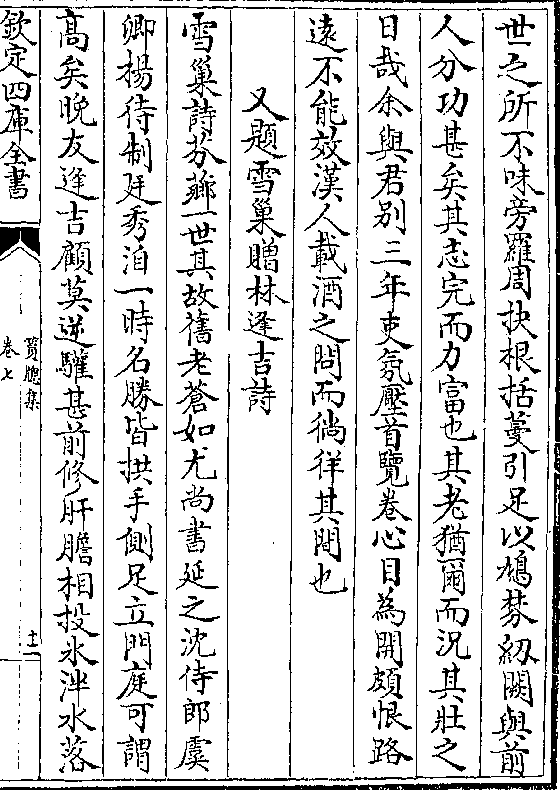 世之所不味旁羅周抉根括蔓引足以鳩棼紉闕與前
人分功甚矣其志完而力富也其老猶爾而況其壯之
日哉余與君别三年吏氛壓首覽卷心目為開頗恨路
遠不能效漢人載酒之問而徜徉其間也
又題雪巢贈林逢吉詩
雪巢詩芬薌一世其故舊老蒼如尤尚書延之沈侍郎虞
卿楊待制廷秀洎一時名勝皆拱手側足立門庭可謂
髙矣晚友逢吉顧莫逆驩甚前修肝膽相投氷泮水落
欽定四庫全書
篔牕集
卷七
十一